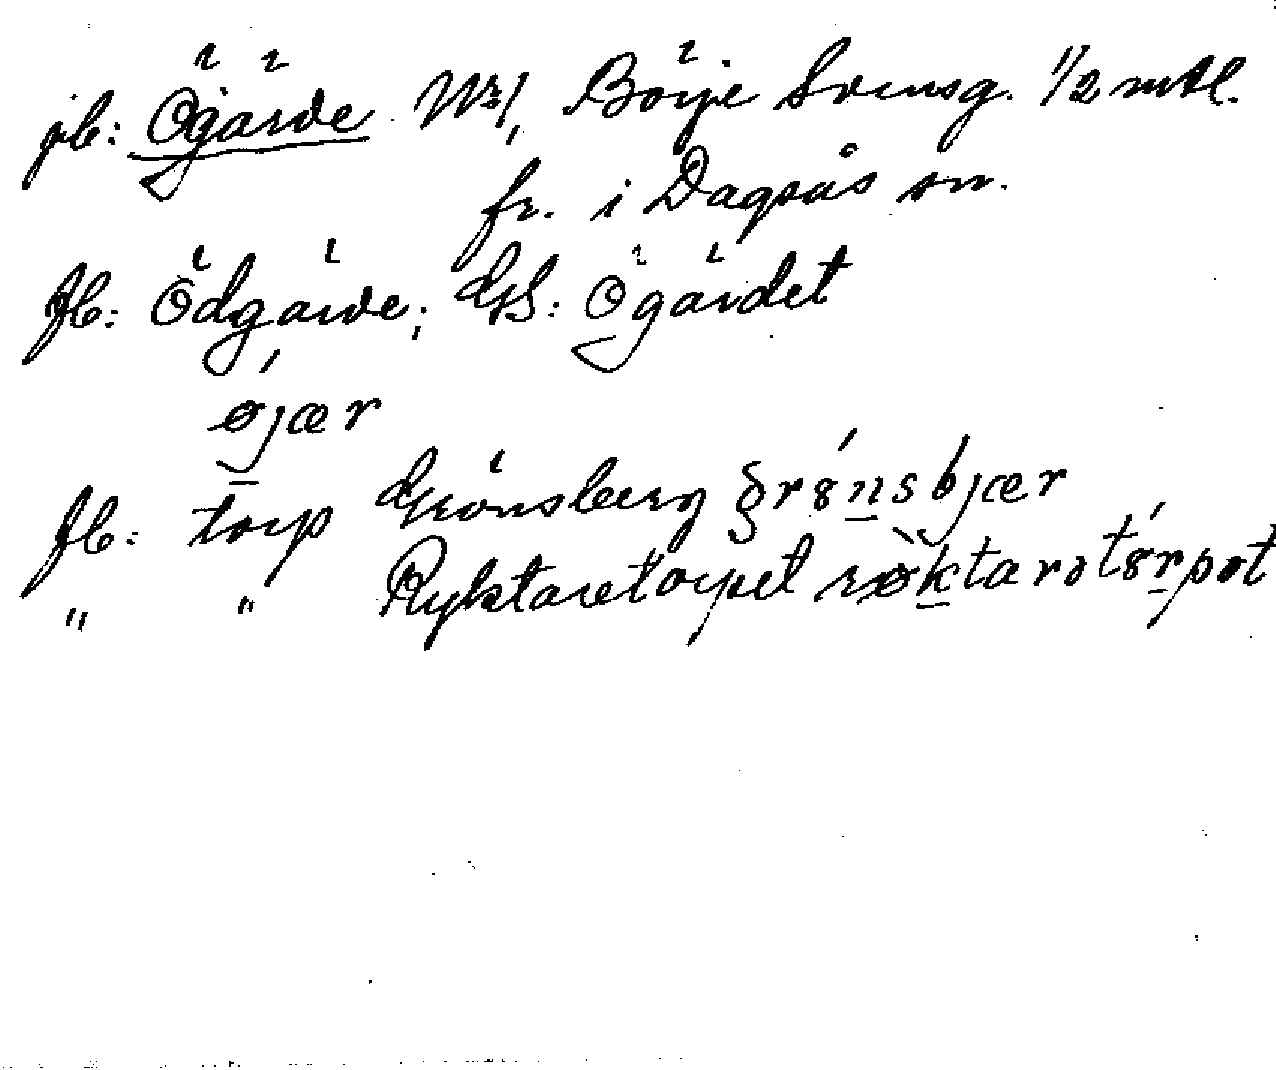 jb: Ögärde No 1, Börje Svensg. 1/2 mtl.
fr. i Dagsås sn.
fb: Ödgärde; GS: Ögärdet
øjær
fb: torp Grönsberg grønsbjær
" " Ryktaretorpet røktarətørpət